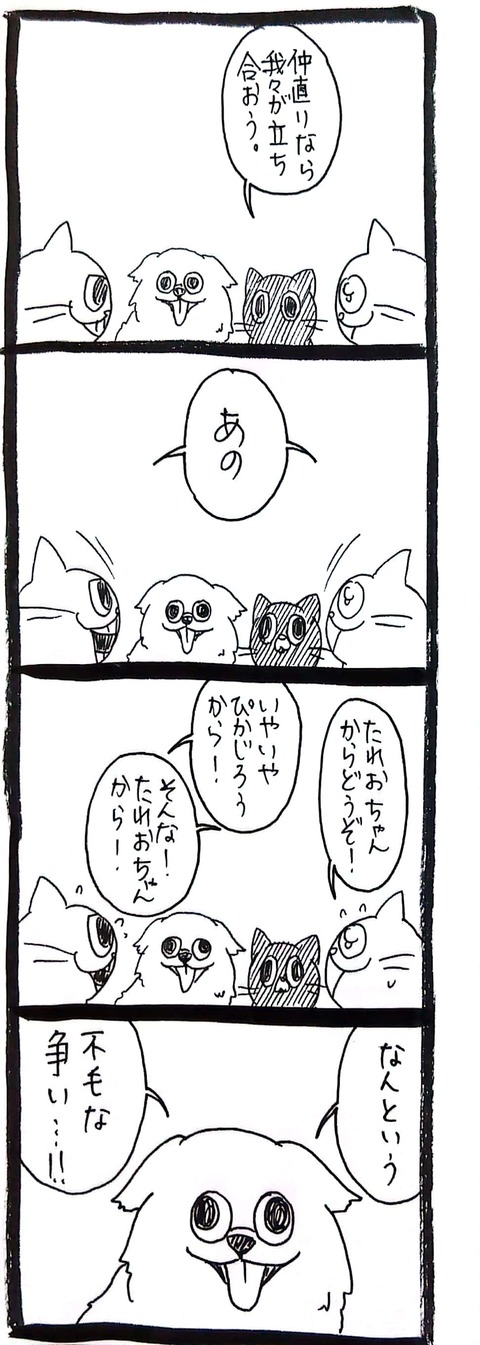 仲直りなら
我々が立ち
合おう。
あの
たれおちゃん
からどうぞ！
いやいや
ぴかじろう
から！
そんな！
たれおちゃん
から！
なんという
不毛な
争い…!!